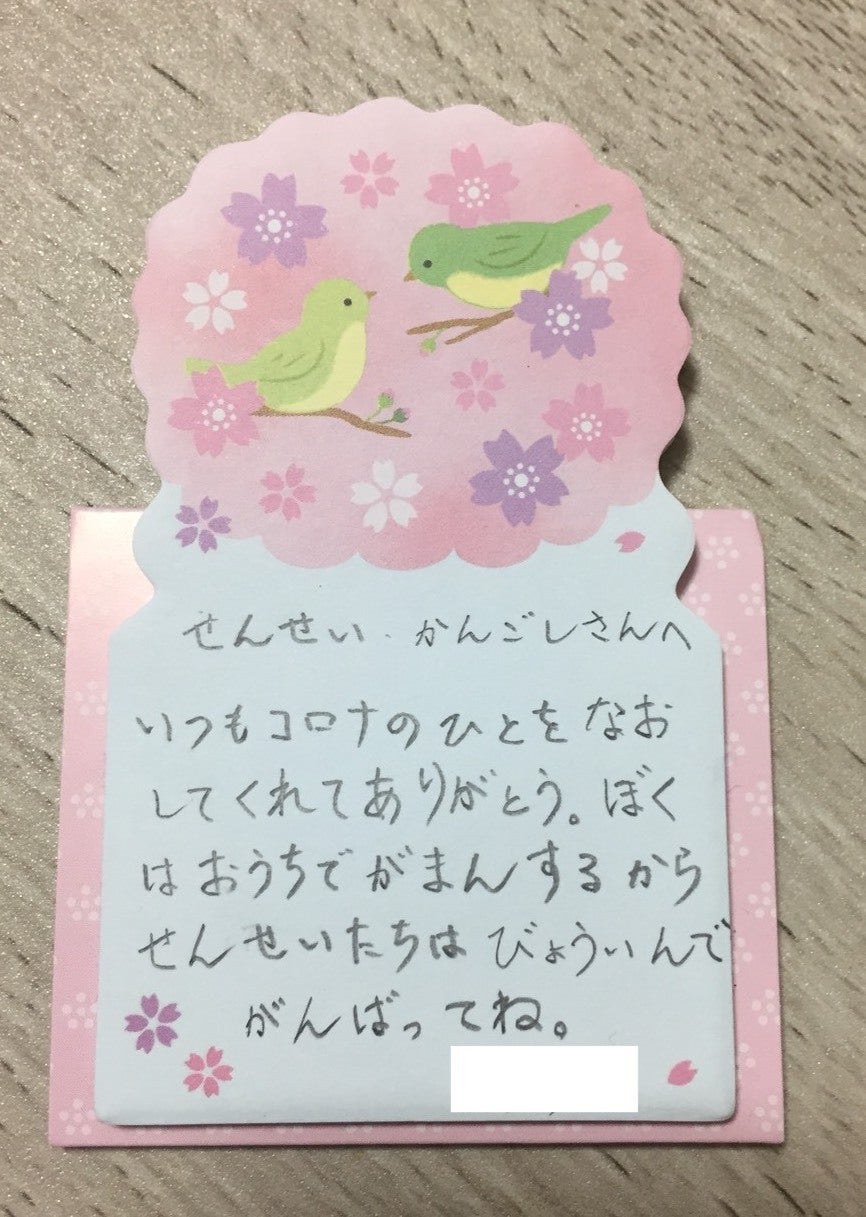 せんせい・かんごしさんへ
いつもコロナのひとをなお
してくれてありがとう。ぼく
はおうちでがまんするから
せんせいたちはびょういんで
がんばってね。